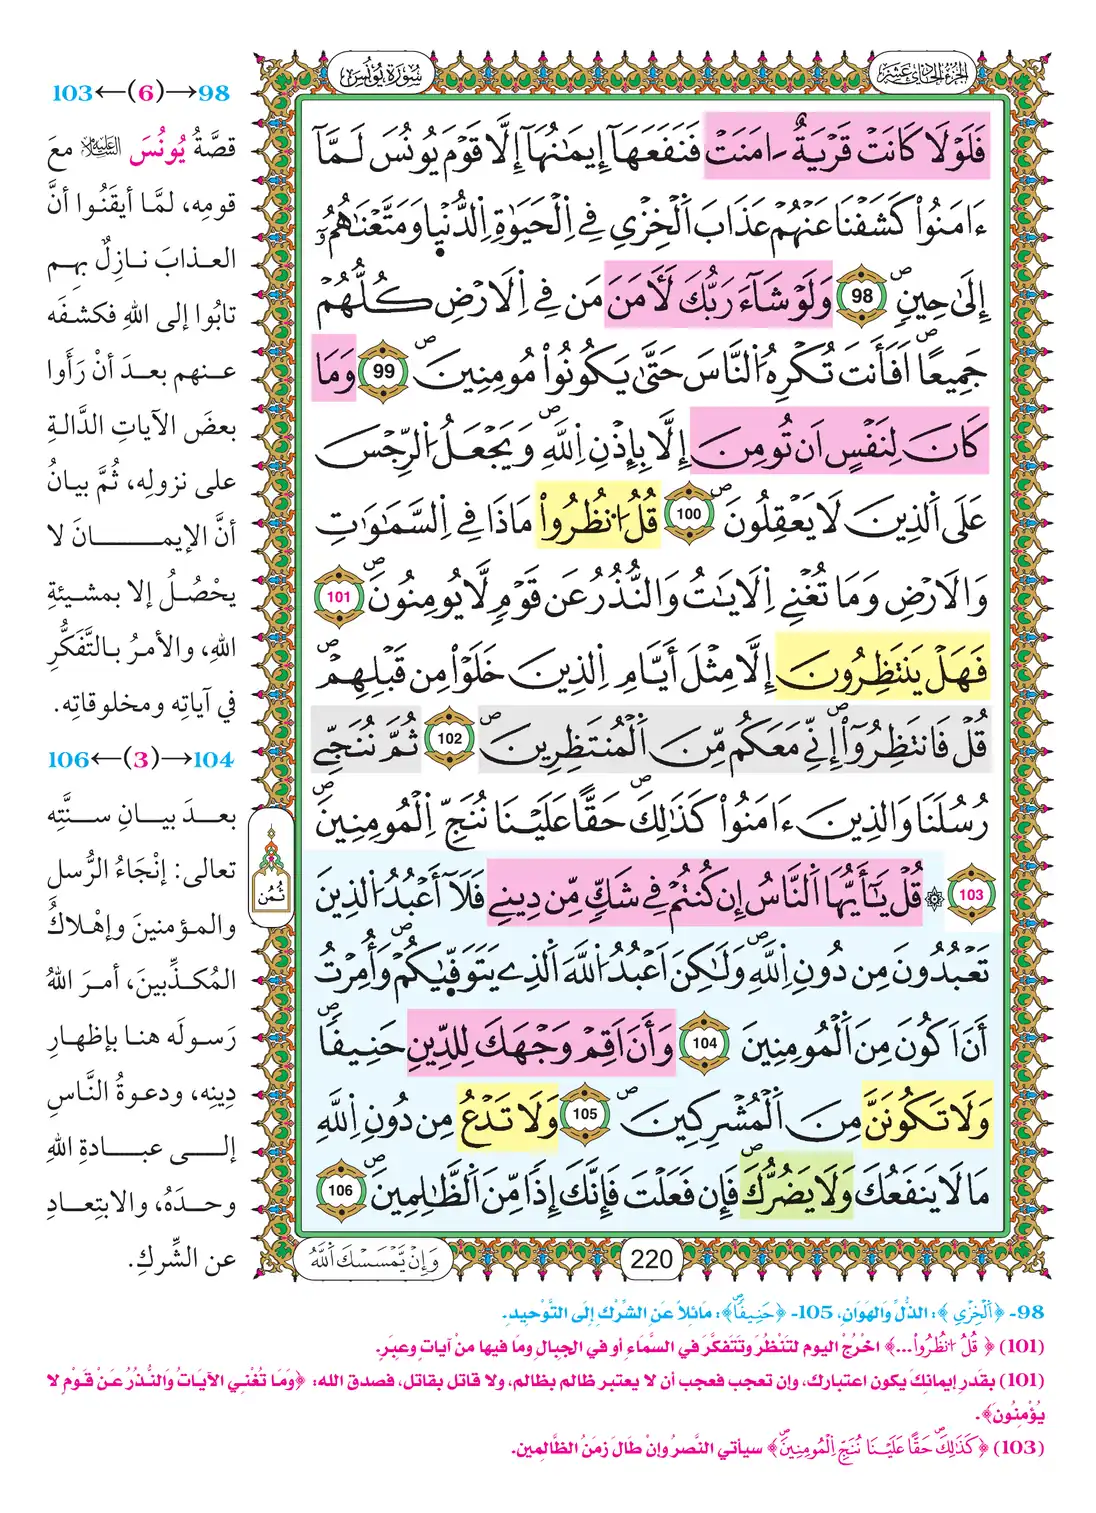 الجزء الحادي عشر
سورة يونس
فَلَوْلَا كَانَتْ قَرْيَةٌ ـ‎َامَنَتْ فَنَفَعَهَآ إِيمَٰنُهَآ إِلَّا قَوْمَ يُونُسَ لَمَّآ
ءَامَنُواْ كَشَفْنَا عَنْهُمْ عَذَابَ اَ۬لْخِزْيِ فِے اِ۬لْحَيَوٰةِ اِ۬لدُّنْي۪ا وَمَتَّعْنَٰهُمُۥٓ
إِلَىٰ حِينٖۖ 98 وَلَوْ شَآءَ رَبُّكَ لَأٓمَنَ مَن فِے اِ۬لَارْضِ كُلُّهُمْ
جَمِيعاًۖ اَفَأَنتَ تُكْرِهُ اُ۬لنَّاسَ حَتَّىٰ يَكُونُواْ مُومِنِينَۖ 99 وَمَا
كَانَ لِنَفْسٍ اَن تُومِنَ إِلَّا بِإِذْنِ اِ۬للَّهِۖ وَيَجْعَلُ اُ۬لرِّجْسَ
عَلَى اَ۬لذِينَ لَا يَعْقِلُونَۖ 100 قُلُ اُ۟نظُرُواْ مَاذَا فِے اِ۬لسَّمَٰوَٰتِ
وَالَارْضِ وَمَا تُغْنِے اِ۬لَايَٰتُ وَالنُّذُرُ عَن قَوْمٖ لَّا يُومِنُونَۖ 101
فَهَلْ يَنتَظِرُونَ إِلَّا مِثْلَ أَيَّامِ اِ۬لذِينَ خَلَوْاْ مِن قَبْلِهِمْۖ
قُلْ فَانتَظِرُوٓاْۖ إِنِّے مَعَكُم مِّنَ اَ۬لْمُنتَظِرِينَۖ 102 ثُمَّ نُنَجِّے
رُسُلَنَا وَالذِينَ ءَامَنُواْ كَذَٰلِكَۖ حَقّاً عَلَيْنَا نُنَجِّ اِ۬لْمُومِنِينَۖ
103 ۞ قُلْ يَٰٓأَيُّهَا اَ۬لنَّاسُ إِن كُنتُمْ فِے شَكّٖ مِّن دِينِے فَلَآ أَعْبُدُ اُ۬لذِينَ
تَعْبُدُونَ مِن دُونِ اِ۬للَّهِۖ وَلَٰكِنَ اَعْبُدُ اُ۬للَّهَ اَ۬لذِے يَتَوَفّ۪يٰكُمْۖ وَأُمِرْتُ
أَنَ اَكُونَ مِنَ اَ۬لْمُومِنِينَ 104 وَأَنَ اَقِمْ وَجْهَكَ لِلدِّينِ حَنِيفاًۖ
وَلَا تَكُونَنَّ مِنَ اَ۬لْمُشْرِكِينَۖ 105 وَلَا تَدْعُ مِن دُونِ اِ۬للَّهِ
مَا لَا يَنفَعُكَ وَلَا يَضُرُّكَۖ فَإِن فَعَلْتَ فَإِنَّكَ إِذاٗ مِّنَ اَ۬لظَّٰلِمِينَۖ 106
ثُمُن
220
وَإِنْ يَّمْسَسْكَ اَ۬للَّهُ
98→(6)←103
قصَّةُ يُونُسَ عليه السلام معَ
قومِه، لمَّا أيقَنُوا أنَّ
العذابَ نازِلٌ بِهِم
تابُوا إلى اللهِ فكشفَه
عنهم بعدَ أنْ رَأَوا
بعضَ الآياتِ الدَّالةِ
على نزولِه، ثُمَّ بيانُ
أنَّ الإيمانَ لا
يحْصُلُ إلا بمشيئةِ
اللهِ، والأمرُ بالتَّفكُّرِ
في آياتِه ومخلوقاتِه.
104→(3)←106
بعدَ بيانِ سنَّتِه
تعالى: إنْجَاءُ الرُّسلِ
والمؤمنينَ وإهْلاكُ
المُكذِّبينَ، أمرَ اللهُ
رَسولَه هنا بإظهارِ
دِينِه، ودعوةُ النَّاسِ
إلى عبادةِ اللهِ
وحدَهُ، والابتِعادِ
عن الشِّركِ.
98- ﴿اَ۬لْخِزْيِ﴾: الذُّلِّ وَالهَوَانِ، 105- ﴿حَنِيفاًۖ﴾: مَائلاً عَنِ الشِّرْك إلَى التَّوْحِيد.
(101) ﴿قُلُ اُ۟نظُرُواْ...﴾ اخْرُجْ اليوم لتَنْظُرَ وتَتَفكَّرَ في السَّمَاءِ أو في الجِبال ومَا فيها منْ آيات وعبَر.
(101) بقَدرِ إيمانكَ يكون اعتبارك، وإن تعجب فعجب أن لا يعتبر ظالم بظالم، ولا قاتل بقاتل، فصدق الله: ﴿وَمَا تُغْنِي الآيَاتُ وَالنُّذُرُ عَنْ قَوْمٍ لا
يُؤْمِنُونَ﴾.
(103) ﴿كَذَٰلِكَۖ حَقّاً عَلَيْنَا نُنَجِّ اِ۬لْمُومِنِينَۖ﴾ سيأتي النَّصرُ وإنْ طَالَ زمَنُ الظَّالِمين.